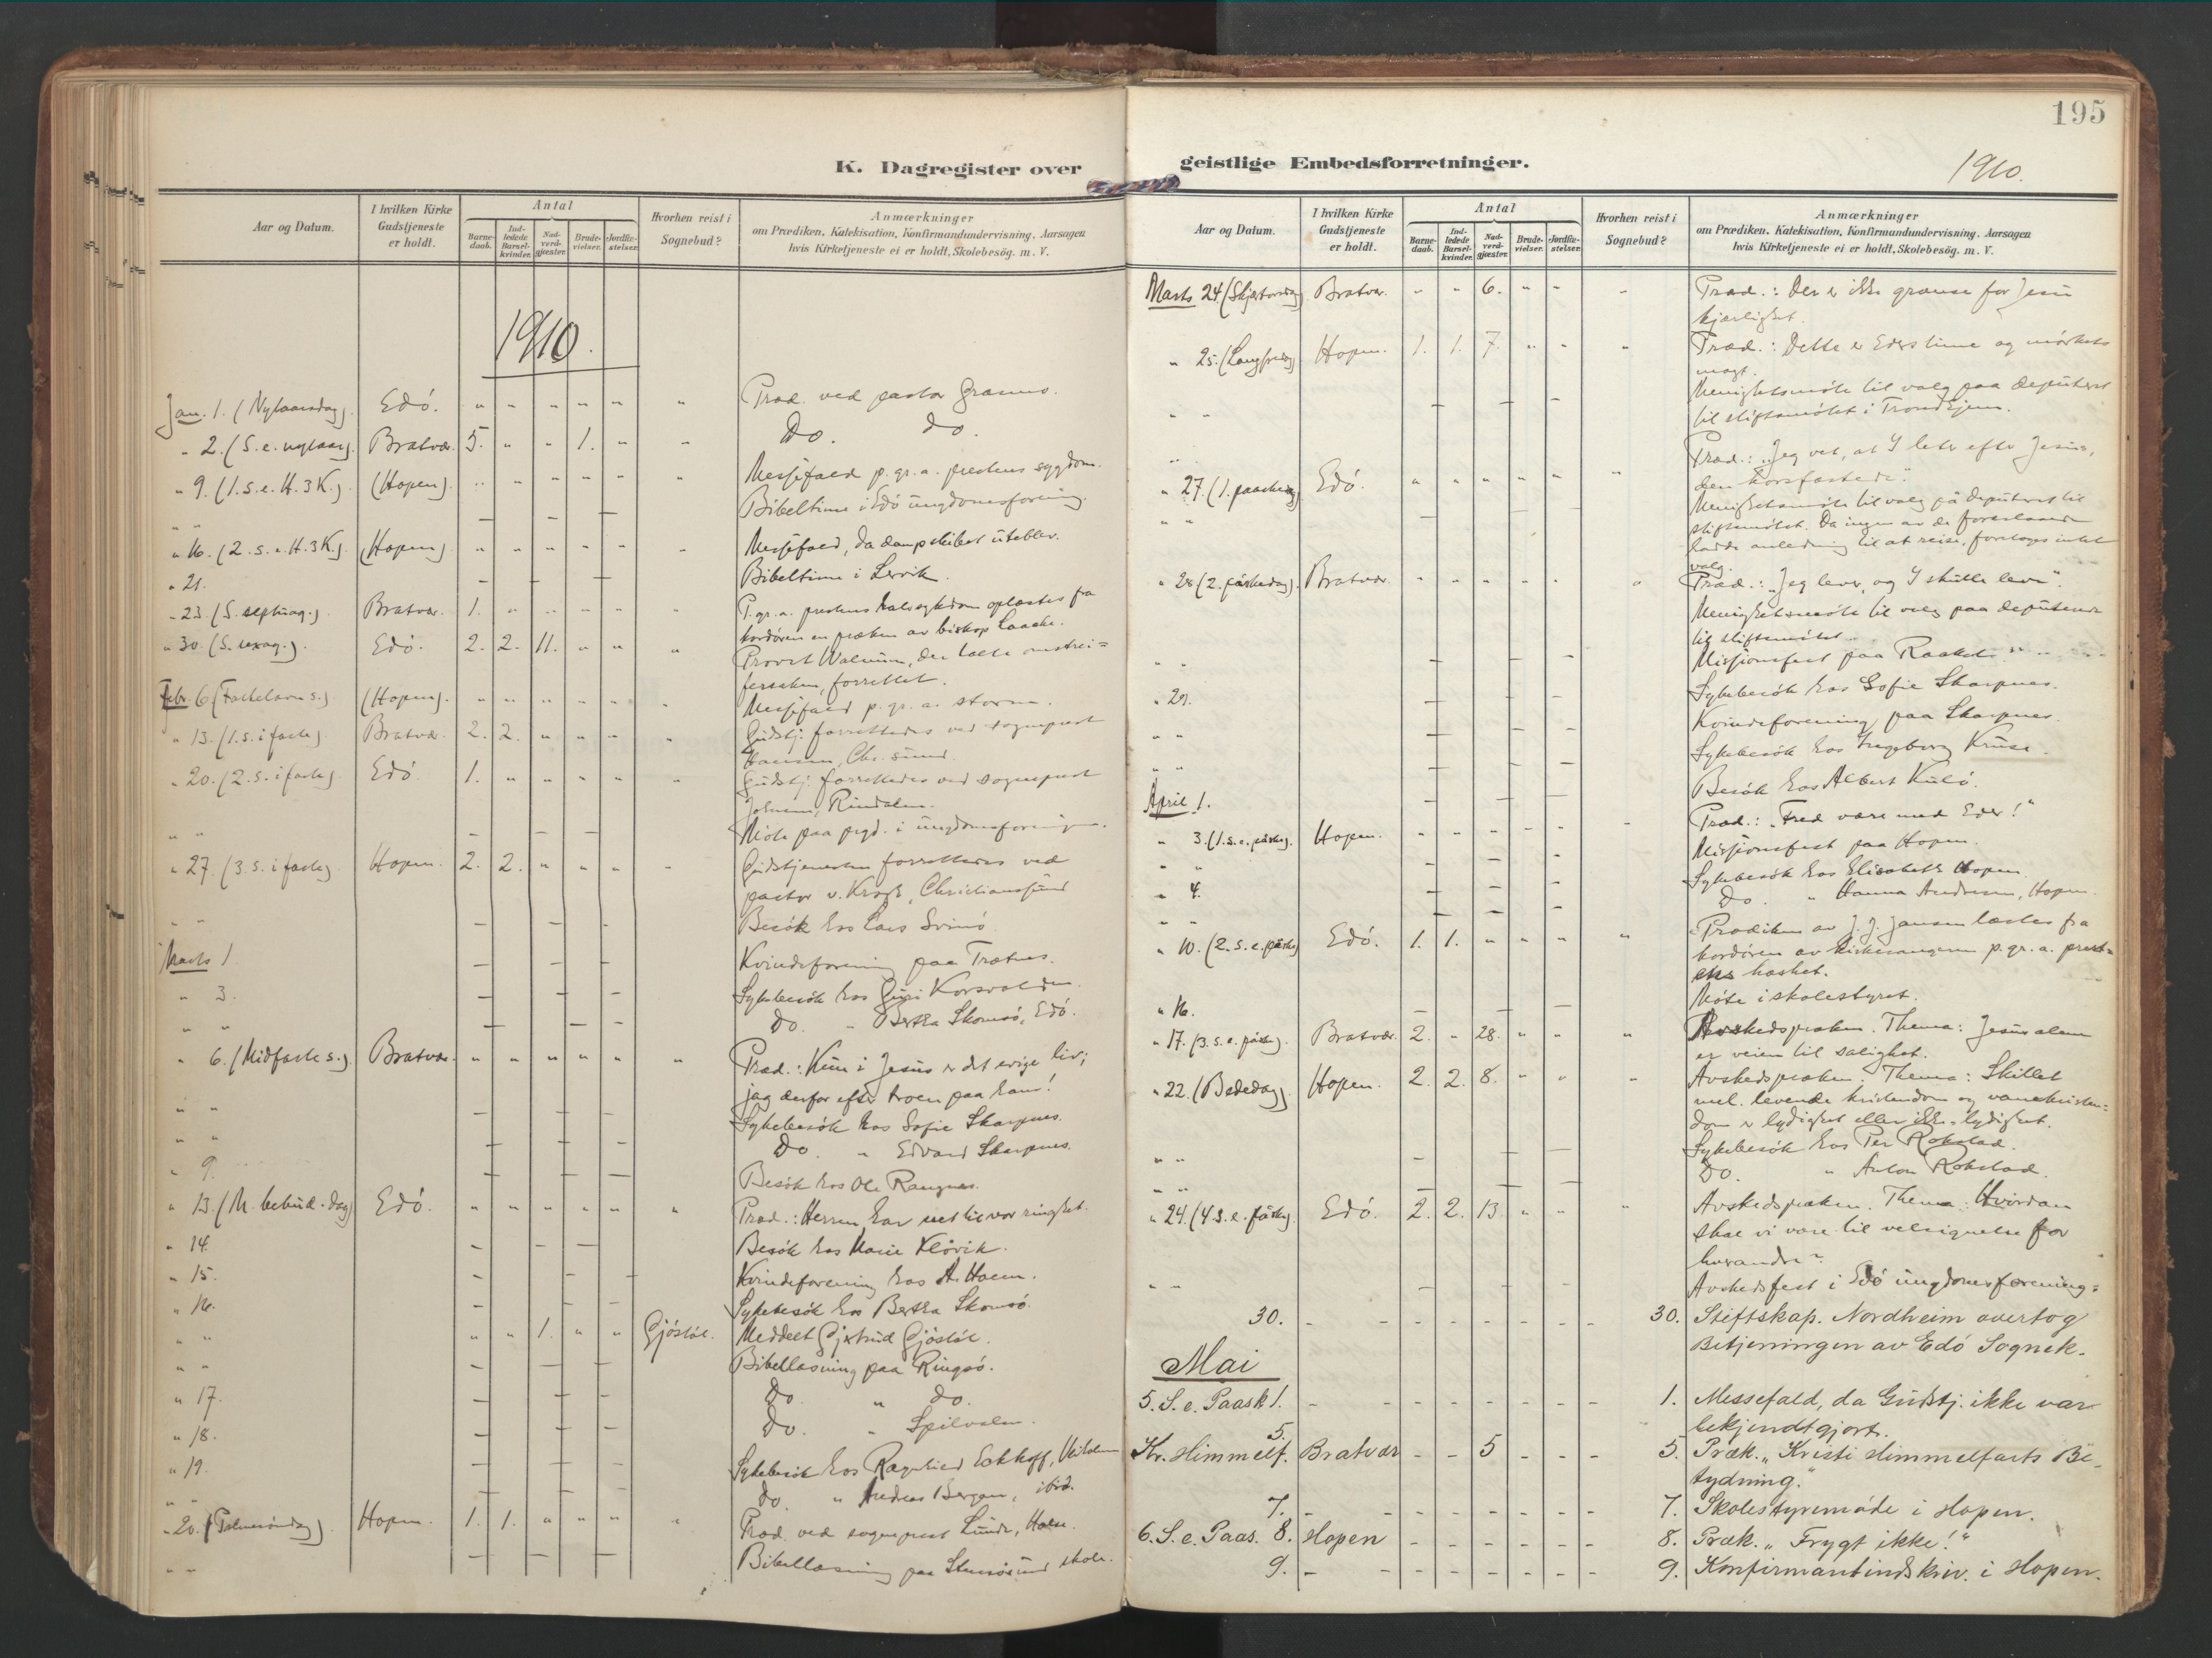 K. Dagregister over
Aar og Datum.
I hvilken Kirke Gudstjeneste er holdt.
Antal
Barne-daab.
Ind-ledede Barsel-kvinder.
Nad-verd-gjæster.
Brude-vielser.
Jordfæ-stelser.
Hvorhen reist i Sognebud?
Anmærkninger
om Prædiken, Katekisation, Konfirmandundervisning, Aarsagen
hvis Kirketjeneste ei er holdt, Skolebesög. m. V.
1910.
Jan. 1. (Nytaarsdag). Edö. " " " " " " Præd. ved pastor Granmo.
" 2. (S. e. nytaar). Bratvær. 5. " " 1. " " Do. do.
" 9. (1. s. e. H. 3 K.). (Hopen). " " " " " " Messefald p. gr. a. prestens sygdom.
" " — — — Bibeltime i Edö ungdomsforening.
" 16. (2. s. e. H. 3 K.). (Hopen). " " " " " " Messefald, da dampskibet uteblev.
" 21. — — — Bibeltime i Lervik.
" 23. (S. septuag.). Bratvær. 1. " " " " " P. gr. a. prestens halssykdom oplæstes fra
kordören en præken av biskop Laache.
" 30. (S. sexag.). Edö. 2. 2. 11. " " " Provst Walnum, der holdt
forrettet.
Febr. 6 (Fastelavns s.) (Hopen). " " " " " " Messefald p. gr. a. storm.
" 13. (1. s. i faste). Bratvær. 2. 2. " " " " Gudstj. forrettedes ved sogneprest
Hansen, Chr.sund.
" 20. (2. s. i faste). Edö. 1. " " " " " Gudstj. forrettedes ved sogneprest
Rindalen.
" " — — — Möte paa prgd. i ungdomsforeningen.
" 27. (3. s. i faste). Hopen. 2. 2. " " " " Gudstjenesten forrettedes ved
pastor v. Krogh, Christianssund
" " — — — Besök hos Lars Svinö.
Marts 1. — — — Kvindeforening paa Trætnes.
" 3. — — — Sykebesök hos Guri Korsvolden.
" " — — — Do. " Bertha Skomsö, Edö.
" 6. (Midfaste s.). Bratvær. " " " " " " Præd.: Kun i Jesus er det evige liv;
jag derfor efter troen paa ham!
" " — — — Sykebesök hos Sofie Skarpnes.
" " — — — Do. " Edvard Skarpnes.
" 9. — — — Besök hos Ole Rangnes.
" 13 (M. bebud. dag) Edö. " " " " " " Præd.: Herren har set til vor ringhet.
" 14. — — — Besök hos Marie Klövik.
" 15. — — — Kvindeforening hos A. Hoem.
" 16. — — — Sykebesök hos Bertha Skomsö.
" " " " 1. " " Gjöstöl. Meddelt Gjertrud Gjöstöl.
" " — — — Bibellæsning paa Ringsö.
" 17. — — — Do " do.
" 18. — — — Do. " Spilvalen.
" 19. — — — Sykebesök hos Ragnhild Eckhoff,
" " — — — Do. " Andreas Bergem, ibid.
" 20. (Palmesöndag). Hopen. 1. 1. " " " " Præd. ved sogneprest Lunde, Halse.
" " — — — Bibellæsning paa skole.
195
geistlige Embedsforretninger.
1910.
Aar og Datum.
I hvilken Kirke Gudstjeneste er holdt.
Antal
Barne-daab.
Ind-ledede Barsel-kvinder.
Nad-verd-gjæster.
Brude-vielser.
Jordfæ-stelser.
Hvorhen reist i Sognebud?
Anmærkninger
om Prædiken, Katekisation, Konfirmandundervisning, Aarsagen
hvis Kirketjeneste ei er holdt, Skolebesög. m. V.
Marts 24 (Skjærtorsdag) Bratvær. " " 6. " " " Præd.: Der er ikke grænse for Jesu
kjærlighet.
" 25. (Langfredag) Hopen. 1. 1. 7 " " " Præd.: Dette er Eders time og mörkets
magt.
" " — — — Menighetsmöte til valg paa deputeret
til stiftsmötet i Trondhjem.
" 27. (1. paaskedag) Edö. " " " " " " Præd.: "Jeg vet, at I leter efter Jesus,
den korsfæstede".
" " — — — Menighetsmöte til valg på deputeret til
stiftsmötet. Da ingen av de foreslaaede
hadde anledning til at reise, foretoges intet
valg.
" 28 (2. påskedag). Bratvær " " " " " " Præd.: "Jeg lever, og I skulle leve".
Menighetsmöte til valg paa deputerede
til stiftsmötet.
" " — — — Missionsfest paa
" 29. — — — Sykebesök hos Sofie Skarpnes.
" " — — — Kvindeforening paa Skarpnes.
" " — — — Sykebesök hos Ingeborg Kruse.
April 1. — — — Besök hos Albert Kulö.
" 3. (1. s. e. påske). Hopen. " Præd.: "Fred være med Eder!"
" " — — — Missionsfest paa Hopen.
" 4. — — — Sykebesök hos Elisabeth Hopen.
" " — — — Do. " Hanna Andresen, Hopen.
" 10. (2. s. e. påske) Edö. 1. 1. " " " " Prædiken av J. J. Jansen læstes fra
kordören av kirkesangeren p. gr. a. prest=
ens heshet.
" 16. — — — Möte i skolestyret.
" 17. (3. s. e. påske). Bratvær. 2. " 28. " " " Avskedspræken. Thema: Jesus alene
er veien til salighet.
" 22. (Bededag). Hopen. 2. 2. 8. " " " Avskedspræken. Thema: Skillet
mel. levende kristendom og vanekristen=
dom er lydighet eller ikke-lydighet.
" " — — — Sykebesök hos Per Rokstad.
" " — — — Do. " Anton Rokstad.
" 24. (4. s. e. påske). Edö. 2. 2. 13 " " " Avskedspræken. Thema: Hvordan
skal vi være til velsignelse for
hverandre?
" " — — — Avskedsfest i Edö ungdomsforening.
30. - - - - - - - 30. Stiftskap. Nordheim overtog
Betjeningen av Edö Sognek.
Mai
5. S. e. Paask 1. - - - - - - - 1. Messefald, da Gudstj. ikke var
bekjendtgjort.
5.
Kr. Himmelf. Bratvær - - 5 - - - 5. Præk. "Kristi Himmelfarts Be-
tydning."
7. - - - - - - - 7. Skolestyremöde i Hopen.
6. S. e. Paas. 8. Hopen - - - - - - 8. Præk. "Frygt ikke!"
9. - - - - - - - 9. Konfirmantindskriv. i Hopen.